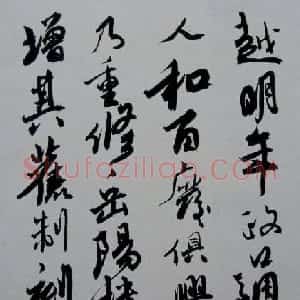 越明年政
人和百廢俱興
乃重修岳陽
增其舊制
Shufaziliao.com